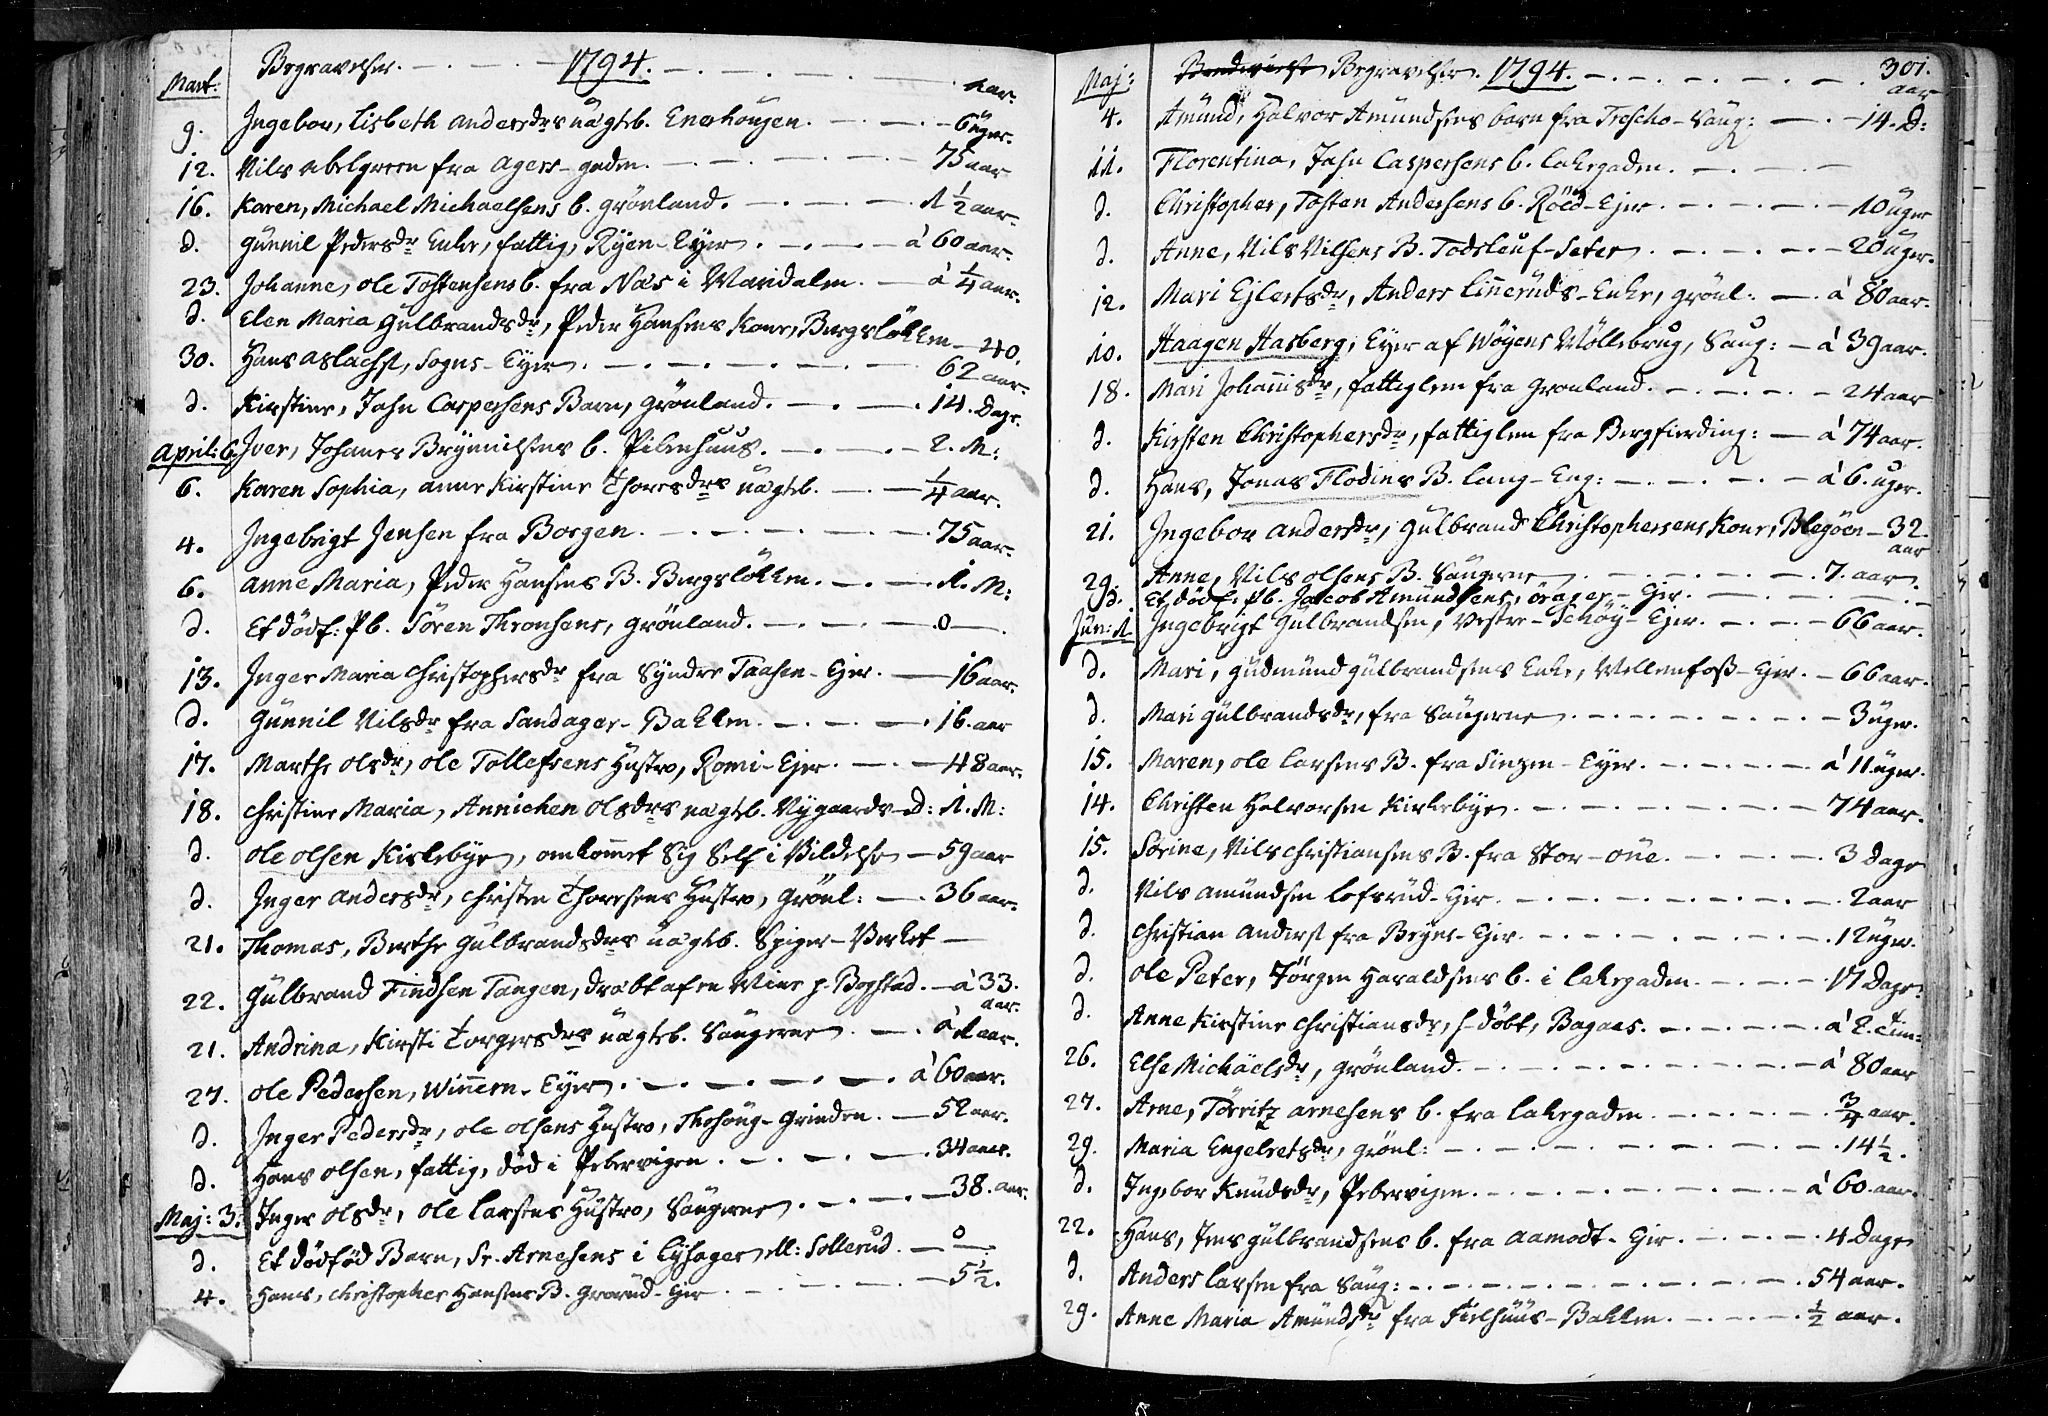 Mart: Begravelser. 1794. aar.
9. Ingebor, Lisbeth Andersdrs uägteb. Enerhougen. 6 uger.
12. Nils Abelgreen fra Agers-gaden. 75 aar
16. Karen, Michael Michaelsens b. Grönland. 1 1/2 aar.
d. Gunnil Pedersdr Enke, fattig, Ryen-Eyer. à 60 aar.
23. Johanne, Ole Tostensens b. fra Näs i Maridalen. à 1/4 aar.
d. Elen Maria Gulbrandsdr, Peder Hansens Kone, Bergslökken 40.
30. Hans Aslachs, Sogns-Eyer. 62 aar.
d. Kirstine, Jahn Caspersens Barn, Grönland. 14. Dage.
April: 6. Iver, Johannes Brynnilsens b. Pilenhuus. 2. M:
6. Karen Sophia, Anne Kirstine Thoresdrs uägteb. 1/4 aar.
4. Ingebrigt Jensen fra Borgen. 75 aar.
6. Anne Maria, Peder Hansens B. Bergslökken. 1. M:
d. Et dödf: Pb. Sören Thronsens, Grönland. 0
13. Inger Maria Christophersdr fra Syndre Taasen-Ejer. 16 aar.
d. Gunnil Nilsdr fra Sandager-Bakken. 16. aar
17. Marthe Olsdr, Ole Tollefsens Hustro, Romi-Ejer. 48 aar.
18. Christine Maria, Annichen Olsdrs uägteb. Nygaards-D: 1. M:
d. Ole Olsen Kirkebye, omkommet Sig Self i Vildelse 59 aar
d. Inger Andersdr, Christen Thoresens Hustro, Grönl: 36 aar.
21. Thomas, Berthe Gulbrandsdrs uägteb. Spiger-Verket
22. Gulbrand Findsen Tangen, dräbt af en Mine p. Bogstad. à 33. aar.
21. Andrina, Kirsti Torgersdrs uägteb. Saugerne à 1 aar.
27. Ole Pedersen, Winnern-Eyer. à 60 aar.
d. Inger Pedersdr, Ole Olsens Hustro, Thohoug-Grinden. 52 aar.
d. Hans Olsen, fattig, död i Pebervigen. 34 aar.
Maj: 3. Inger Olsdr, Ole Larsens Hustro, Saugerne. 38. aar.
d. Et dödföd Barn, Sr. Arnesens i Lysager Ml: Sollerud. 0
4. Hans, Christopher Hansens B. Grorud-Ejer 5 1/2.
Maj: Begravelser. 1794. 301. aar
4. Amund, Halvor Amundsens barn fra Trescho-Saug: 14. D:
11. Florentina, Jahn Caspersens b. Lakegaden.
d. Christopher, Tosten Andersens b. Röed-Ejer. 10 uger
d. Anne, Nils Nilsens B. Todsleuf-Seter 20 uger.
12. Mari Ejlertsdr, Anders Linneruds-Enke, Grönl: à 80 aar.
10. Haagen Hasberg, Eyer af Wöyens Möllebrug, Saug: à 39 aar.
18. Mari Johannisdr, fattiglem fra Grönland. 24 aar
d. Kirsten Christophersdr, fattiglem fra Bergfierding: à 74 aar.
d. Hans, Jonas Flodins B. Lang-Eng: à 6. uger.
21. Ingebor Andersdr, Gulbrand Christophersens Kone, Blegöen 32. aar
29. Anne, Nils Olsens B. Saugerne 7. aar.
d. Et dödf. Pb. Jacob Amundsens, örager-Ejer.
Jun: 1. Ingebrigt Gulbrandsen, Vestre-Schöy-Ejer. 66 aar.
d. Mari, Gudmund Gulbrandsens Enke, Mellemfoss-Ejer. 66 aar.
d. Mari Gulbrandsdr, fra Saugerne 3 uger.
15. Maren, Ole Larsens B. fra Sinzen-Eyer. à 11 uger.
14. Christen Halvorsen Kirkebye. 74 aar.
15. Sörine, Nils Christiansens B. fra Stor-oue. 3 Dage
d. Nils Amundsen Lofsrud-Ejer. 2 aar
d. Christian Anders fra Bryns-Ejer. 12 uger.
d. Ole Peter, Jörgen Haraldsens b. i Lakegaden. 17 Dage.
d. Anne Kirstine Christiansdr, h-döbt, Bagaas. à 2. tim:
26. Else Michäelsdr, Grönland. à 80 aar
27. Arne, Törritz Arnesens b. fra Lakegaden 3/4 aar.
29. Maria Engelretsdr, Grönl: 14 1/2.
d. Ingebor Knudsdr, Pebervigen. à 60. aar.
22. Hans, Jens Gulbrandsens b. fra Aamodt-Ejer. 4 Dage
d. Anders Larsen fra Saug: 54 aar.
29. Anne Maria Amundsdr fra Fielhuus-Bakken. 1/2 aar.